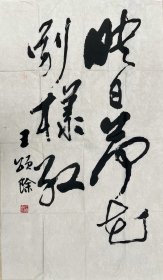 映日荷花
别样红
王颂馀